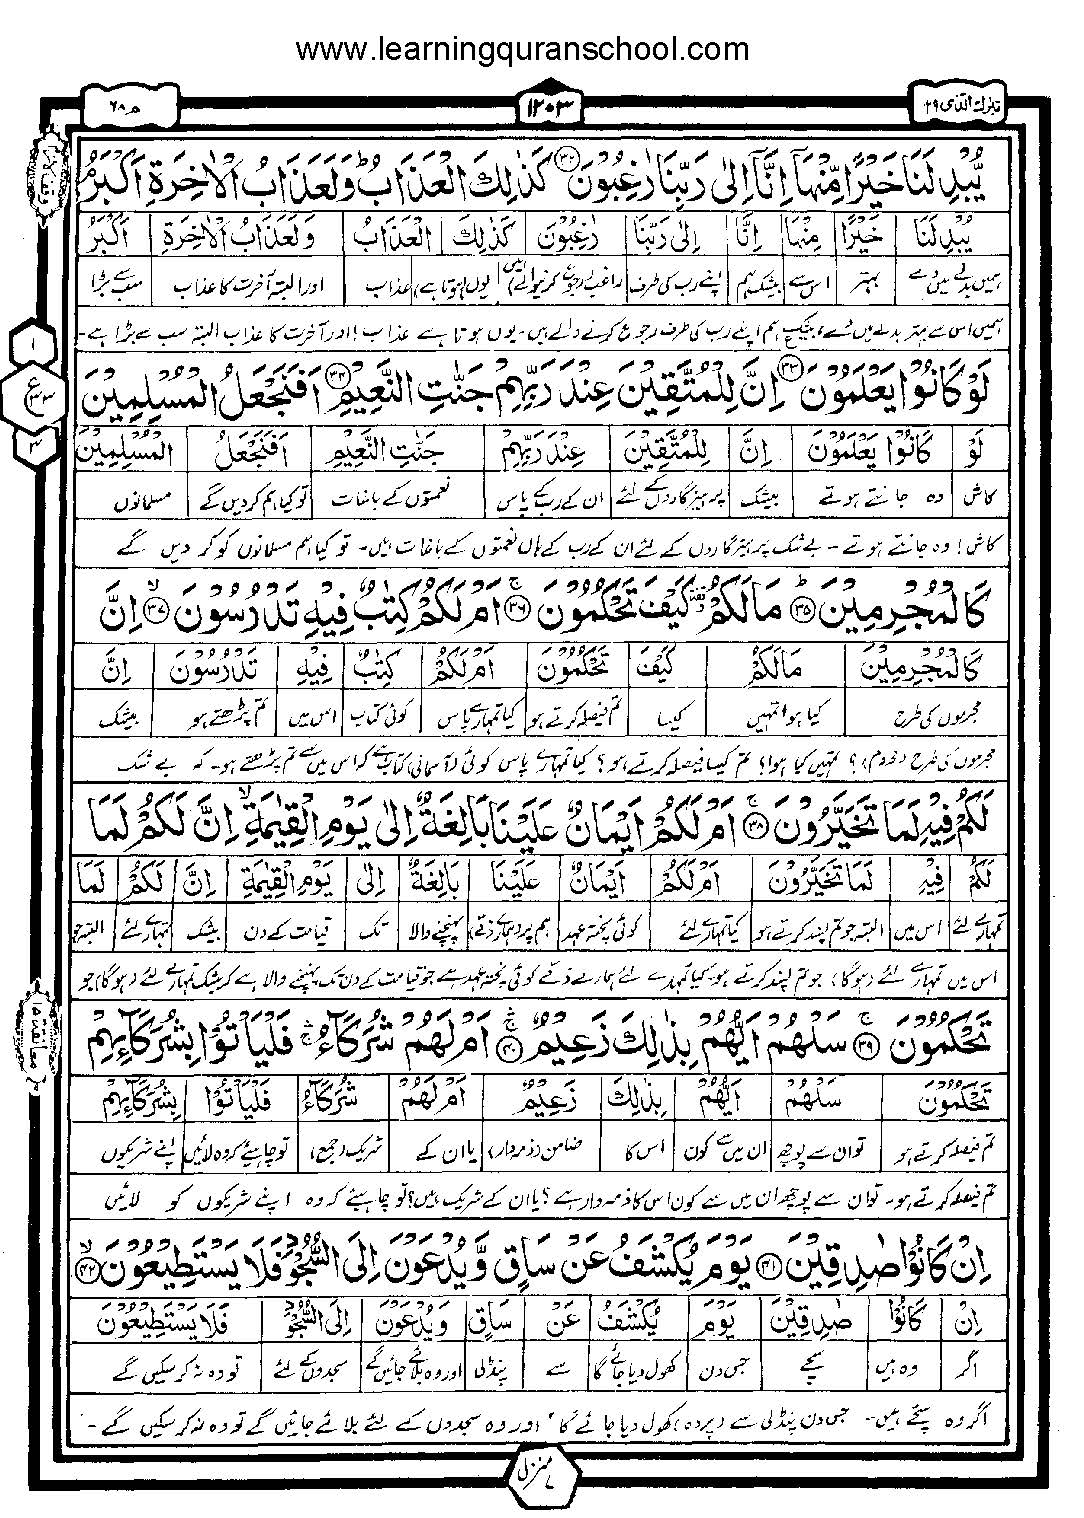 www.learningquranschool.com
تبٰرك الذی ۲۹
۱۲۰۳
م ۶۸
يُّبْدِلَنَا خَيْرًا مِّنْهَآ اِنَّآ اِلٰى رَبِّنَا رٰغِبُوْنَ ۳۲ كَذٰلِكَ الْعَذَابُ ؕ وَلَعَذَابُ الْاٰخِرَةِ اَكْبَرُ ۘ
يُّبْدِلَنَا خَيْرًا مِّنْهَآ اِنَّآ اِلٰى رَبِّنَا رٰغِبُوْنَ كَذٰلِكَ الْعَذَابُ وَلَعَذَابُ الْاٰخِرَةِ اَكْبَرُ
ہمیں بدلے میں دے بہتر اس سے بیشک ہم اپنے رب کی طرف راغب (رجوع کرنیوالے) ہیں یوں (ہوتا ہے) عذاب اور البتہ آخرت کا عذاب سب سے بڑا
ہمیں اس سے بہتر بدلے میں دے، بیشک ہم اپنے رب کی طرف رجوع کرنے والے ہیں۔ یوں ہوتا ہے عذاب! اور آخرت کا عذاب البتہ سب سے بڑا ہے۔
۱
ع
۳۳
۴
لَوْ كَانُوْا يَعْلَمُوْنَ ۳۳ اِنَّ لِلْمُتَّقِيْنَ عِنْدَ رَبِّهِمْ جَنّٰتِ النَّعِيْمِ ۳۴ اَفَنَجْعَلُ الْمُسْلِمِيْنَ
لَوْ كَانُوْا يَعْلَمُوْنَ اِنَّ لِلْمُتَّقِيْنَ عِنْدَ رَبِّهِمْ جَنّٰتِ النَّعِيْمِ اَفَنَجْعَلُ الْمُسْلِمِيْنَ
کاش وہ جانتے ہوتے بیشک پرہیزگاروں کے لئے ان کے رب کے پاس نعمتوں کے باغات تو کیا ہم کردیں گے مسلمانوں
کاش! وہ جانتے ہوتے۔ بے شک پرہیزگاروں کے لئے ان کے رب کے ہاں نعمتوں کے باغات ہیں۔ تو کیا ہم مسلمانوں کو کر دیں گے
كَالْمُجْرِمِيْنَ ؕ ۳۵ مَا لَكُمْ وقفۃ كَيْفَ تَحْكُمُوْنَ ۚ ۳۶ اَمْ لَكُمْ كِتٰبٌ فِيْهِ تَدْرُسُوْنَ ۙ ۳۷ اِنَّ
كَالْمُجْرِمِيْنَ مَا لَكُمْ كَيْفَ تَحْكُمُوْنَ اَمْ لَكُمْ كِتٰبٌ فِيْهِ تَدْرُسُوْنَ اِنَّ
مجرموں کی طرح کیا ہوا تمہیں کیسا تم فیصلہ کرتے ہو کیا تمہارے پاس کوئی کتاب اس میں تم پڑھتے ہو بیشک
مجرموں کی طرح (محروم)؟ تمہیں کیا ہوا؟ تم کیسا فیصلہ کرتے ہو؟ کیا تمہارے پاس کوئی (آسمانی) کتاب ہے کہ اس میں سے تم پڑھتے ہو۔ کہ بے شک
لَكُمْ فِيْهِ لَمَا تَخَيَّرُوْنَ ۚ ۳۸ اَمْ لَكُمْ اَيْمَانٌ عَلَيْنَا بَالِغَةٌ اِلٰى يَوْمِ الْقِيٰمَةِ ۙ اِنَّ لَكُمْ لَمَا
لَكُمْ فِيْهِ لَمَا تَخَيَّرُوْنَ اَمْ لَكُمْ اَيْمَانٌ عَلَيْنَا بَالِغَةٌ اِلٰى يَوْمِ الْقِيٰمَةِ اِنَّ لَكُمْ لَمَا
تمہارے لئے اس میں البتہ جو تم پسند کرتے ہو کیا تمہارے لئے کوئی پختہ عہد ہم پر (ہمارے ذمے) پہنچنے والا تک قیامت کے دن بیشک تمہارے لئے البتہ جو
اس میں تمہارے لئے (ہوگا) جو تم پسند کرتے ہو، کیا تمہارے لئے ہمارے ذمے کوئی پختہ عہد ہے جو قیامت کے دن تک پہنچنے والا ہے کہ بیشک تمہارے لئے (ہوگا) جو
معانقۃ ۱۵
تَحْكُمُوْنَ ۚ ۳۹ سَلْهُمْ اَيُّهُمْ بِذٰلِكَ زَعِيْمٌ ۚۛ ۴۰ اَمْ لَهُمْ شُرَكَآءُ ۚۛ فَلْيَاْتُوْا بِشُرَكَآئِهِمْ
تَحْكُمُوْنَ سَلْهُمْ اَيُّهُمْ بِذٰلِكَ زَعِيْمٌ اَمْ لَهُمْ شُرَكَآءُ فَلْيَاْتُوْا بِشُرَكَآئِهِمْ
تم فیصلہ کرتے ہو تو ان سے پوچھ ان میں سے کون اس کا ضامن (ذمہ دار) یا ان کے شریک (جمع) تو چاہیئے کہ وہ لائیں اپنے شریکوں
تم فیصلہ کرتے ہو۔ تو ان سے پوچھ ان میں سے کون اس کا ذمہ دار ہے؟ یا ان کے شریک ہیں؟ تو چاہیئے کہ وہ اپنے شریکوں کو لائیں
اِنْ كَانُوْا صٰدِقِيْنَ ۴۱ يَوْمَ يُكْشَفُ عَنْ سَاقٍ وَّيُدْعَوْنَ اِلَى السُّجُوْدِ فَلَا يَسْتَطِيْعُوْنَ ۙ ۴۲
اِنْ كَانُوْا صٰدِقِيْنَ يَوْمَ يُكْشَفُ عَنْ سَاقٍ وَّيُدْعَوْنَ اِلَى السُّجُوْدِ فَلَا يَسْتَطِيْعُوْنَ
اگر وہ ہیں سچے جس دن کھول دیا جائے گا سے پنڈلی اور وہ بلائے جائیں گے سجدوں کے لئے تو وہ نہ کر سکیں گے
اگر وہ سچے ہیں۔ جس دن پنڈلی سے (پردہ) کھول دیا جائے گا، اور وہ سجدوں کے لئے بلائے جائیں گے تو وہ نہ کر سکیں گے۔
منزل ۷